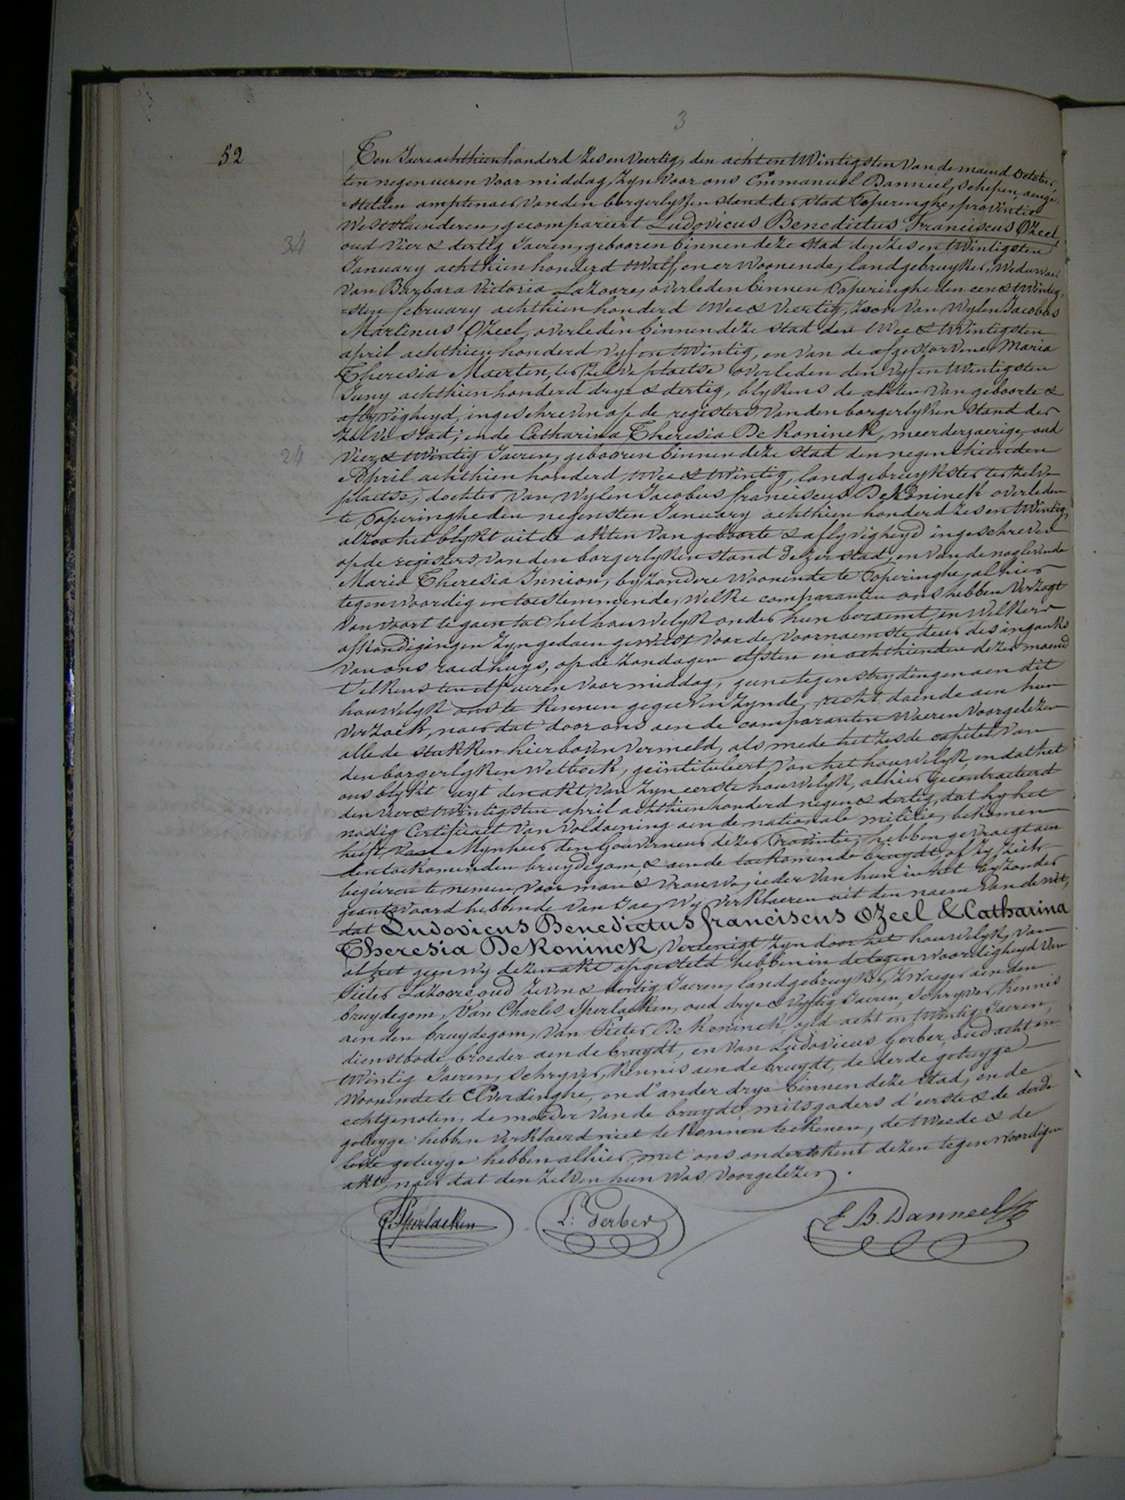 3
52
Ten Jaere achthien honderd zes en veertig, den acht en twintigsten van de maend October,
ten negen ueren voor middag, zyn voor ons Emmanuel Danneel, schepen, aenge-
stelden amptenaer van den borgerlyken stand der stad Poperinghe, provintie
Westvlaenderen, gecompareert Ludovicus Benedictus Franciscus Ozeel
34
oud vier & dertig Jaeren, gebooren binnen deze stad den zes en twintigsten
January achthien honderd twalf, en er woonende, landgebruyker, Weduwaer
van Barbara Victoria Lazoore, overleden binnen Poperinghe den een & twintig-
sten february achthien honderd twee & veertig, zoon van wylen Jacobus
Martinus Ozeel, overleden binnen deze stad den twee & twintigsten
april achthien honderd vyf en twintig, en van de afgestorvene Maria
Theresia Maerten, ter zelve plaetse overleden den vyf en twintigsten
Juny achthien honderd drye & dertig, blykens de akten van geboorte &
aflyvigheyd, ingeschreven op de registers van den borgerlyken stand der
zelve stad; ende Catharina Theresia De Koninck, meerderjaerige, oud
24
vier & twintig Jaeren, gebooren binnen deze stad den negenthienden
April achthien honderd twee & twintig, landgebruykster ter zelve
plaetse, dochter van wylen Jacobus franciscus De Koninck overleden
te Poperinghe den negensten January achthien honderd zes en twintig,
alzoo het blykt uit de akten van geboorte & aflyvigheyd ingeschreven
op de registers van den borgerlyken stand dezer stad, en van de naglevende
Marie Theresia Innion, byzondere woonende te Poperinghe, alhier
tegenwoordig en toestemmende, welke comparanten ons hebben verzogt
van voort te gaen tot het houwelyk onder hun beraemt en welkers
afkondigingen zyn gedaen geweest voor de voornaemste deur des ingank
van ons raedhuys, op de zondagen elfsten en achthienden dezer maend
t'elkens ten elf ueren voor middag, geene tegenstrydingen aen dit
houwelyk ons te kennen gegeven zynde, recht doende aen hun
verzoek, naer dat door ons aen de comparanten waeren voorgelezen
alle de stukken hier boven vermeld, als mede het zesde capittel van
den borgerlyken wetboek, geïntituleert van het houwelyk, en dat het
ons blykt uyt den akt van zyn eerste houwelyk, alhier gecontracteerd
den vier & twintigsten april achthien honderd negen & dertig, dat hy het
noodig Certificaet van voldoening aen de nationale militie, bekomen
heeft van Mynheer den Gouverneur dezer Provintie, hebben gevraegt aen
den toekomenden bruydegom, & aen de toekomende bruydt, of zy zich
begeiren te nemen voor man & vrouwe, ieder van hun in 't byzonder
geantwoord hebbende van Jae, wy verklaeren uit den naem van de wet,
dat Ludovicus Benedictus franciscus Ozeel & Catharina
Theresia De Koninck, vereenigt zyn door het houwelyk, van
al het geen wy dezen akt opgesteld hebben in de tegenwoordigheyd van
Pieter Lazoore oud zeven & dertig Jaeren, landgebruyker, zwager aen den
bruydegom, van Charles Sperlaeken, oud drye & vyftig Jaeren, schryver, kennis
aen den bruydegom, van Pieter De Koninck, oud acht en twintig Jaeren,
dienstbode broeder aen de bruydt, en van Ludovicus Gerber, oud acht en
twintig Jaeren, schryver, kennis aen de bruydt, de derde getuyge
woonende te Elverdinghe, en d'ander drye binnen deze stad, en de
echtgenoten, de moeder van de bruydt, mitsgaders d'eerste & de derde
getuyge hebben verklaerd niet te konnen teekenen, de tweede & de
leste getuyge hebben alhier met ons onderteekent dezen tegenwoordigen
akt, naer dat den zelven hun was voorgelezen.
C Sperlaeken L: Gerber E B. Danneel